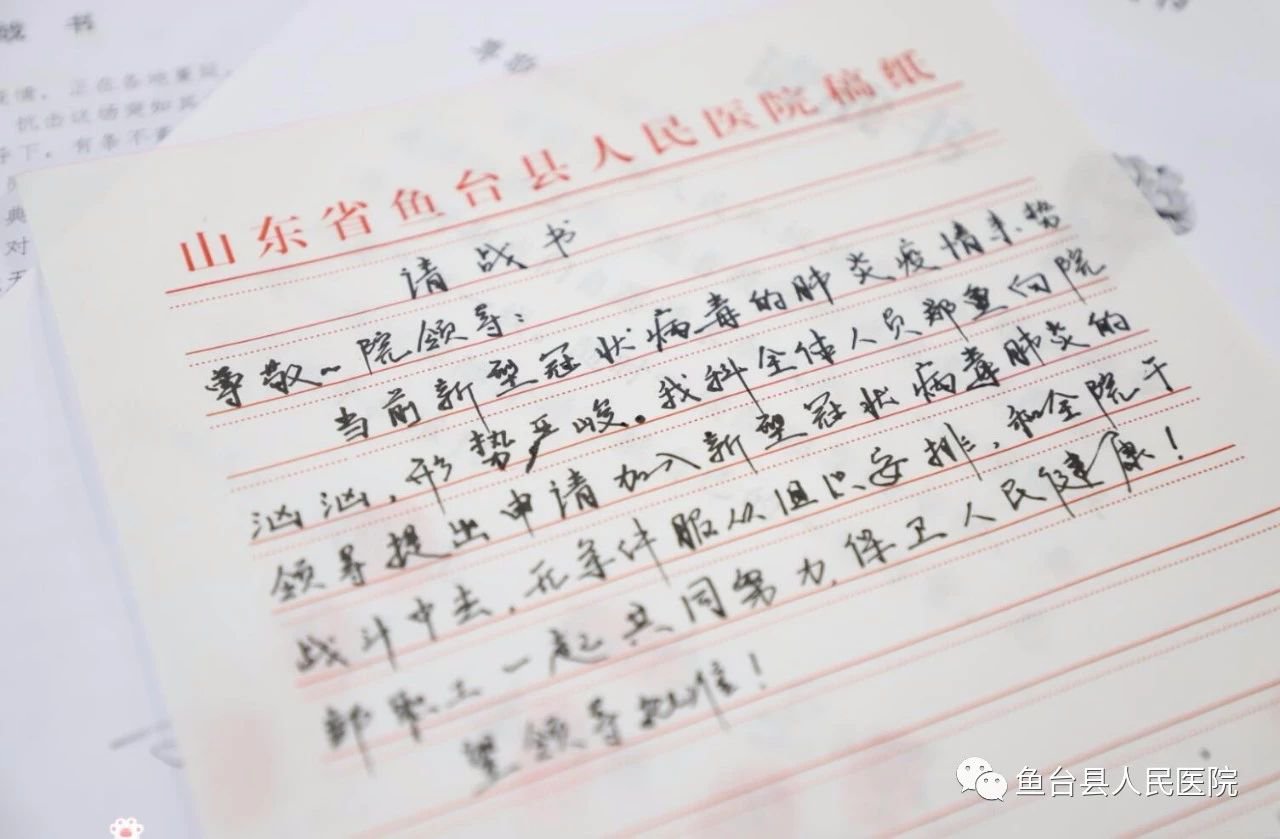 战 书
正在各地蔓延,
抗击这场突如其
导下,有条不紊
典
对
山东省鱼台县人民医院稿纸
请战书
尊敬的院领导:
当前新型冠状病毒的肺炎疫情来势
汹汹,形势严峻。我科全体人员郑重向院
领导提出申请加入新型冠状病毒肺炎的
战斗中去,无条件服从组织安排,和全院干
部职工一起共同努力,保卫人民健康!
望领导批准!
鱼台县人民医院